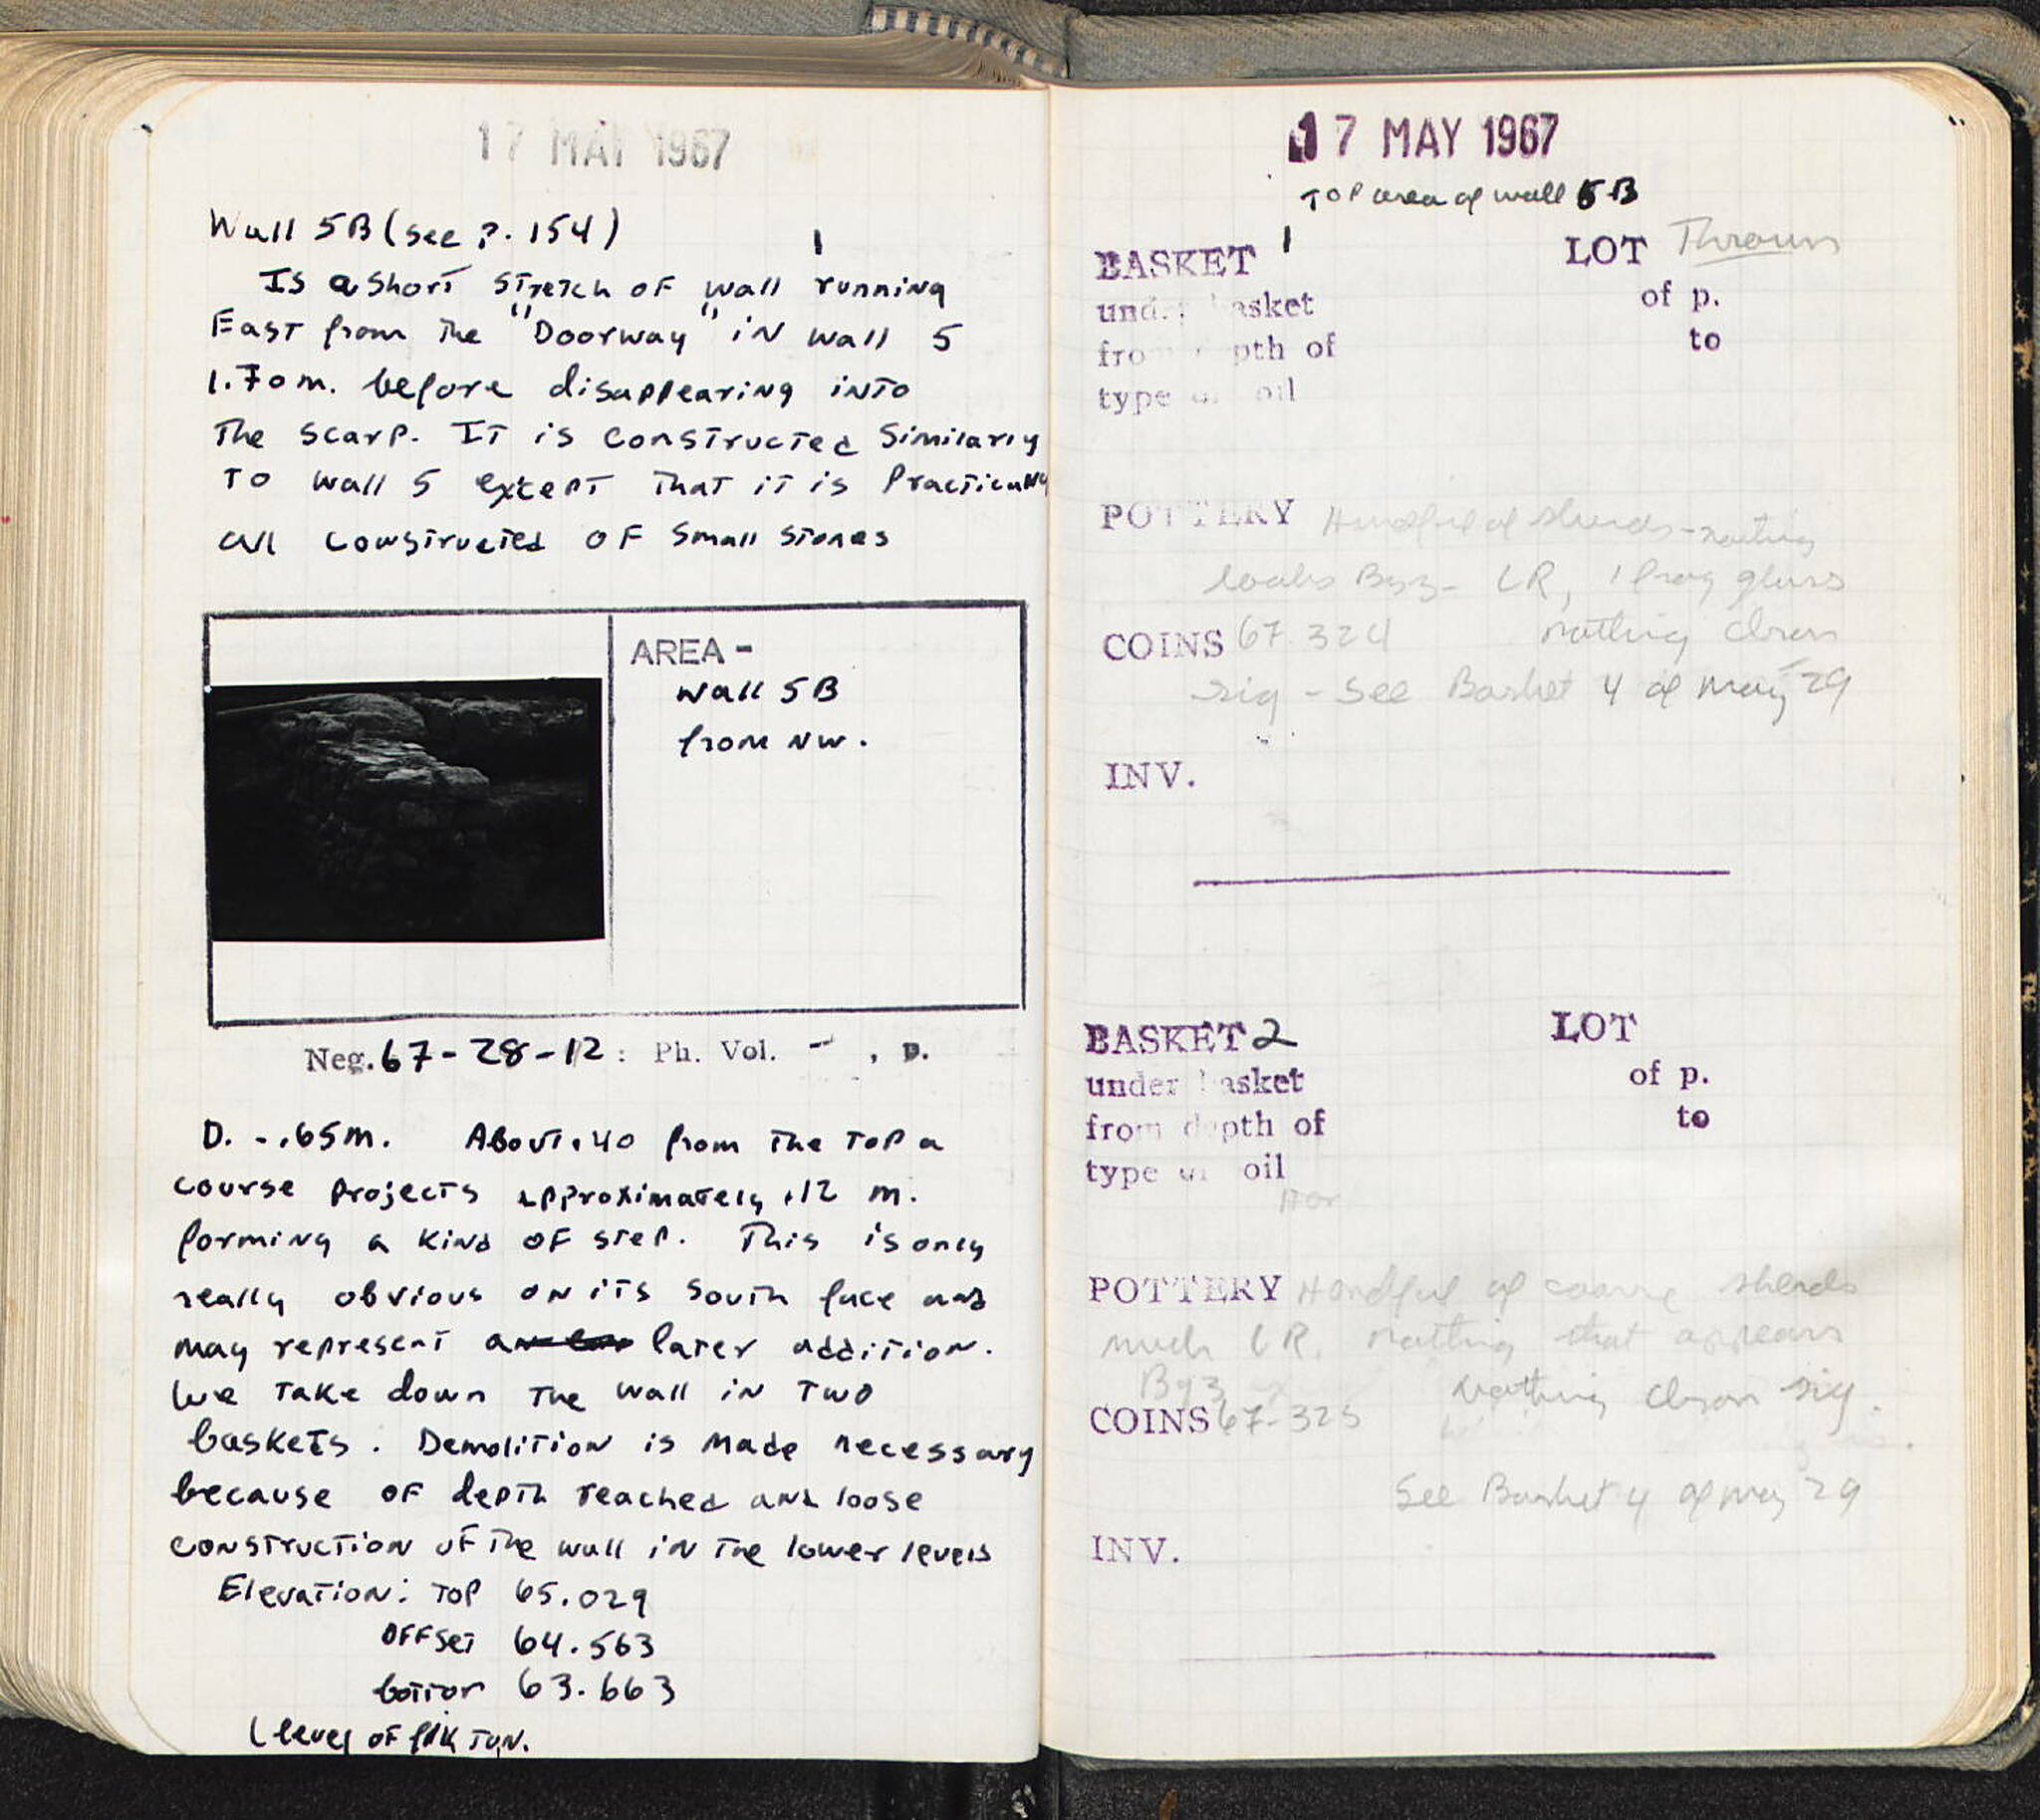 17 MAY 1967
Wall 5B (see p. 154)
1
Is a short stretch of wall running
East from the "Doorway" in wall 5
1.70m. before disappearing into
the scarp. It is constructed similarly
to wall 5 except that it is practically
all constructed of small stones
AREA -
wall 5B
from NW.
Neg. 67-28-12 : Ph. Vol. - , p.
D. -.65m. About .40 from the top a
course projects approximately .12 m.
forming a kind of step. This is only
really obvious on its south face and
may represent a later addition.
We take down the wall in two
baskets. Demolition is made necessary
because of depth reached and loose
construction of the wall in the lower levels
Elevation: top 65.029
offset 64.563
bottom 63.663
(level of
17 MAY 1967
Top area of wall 5B
BASKET 1 LOT Thrown
under basket of p.
from depth of to
type of soil
POTTERY Handful of sherds - nothing
looks Byz - LR, 1 frag glass
COINS 67.324 nothing chron
sig - See Basket 4 of May 29
INV.
BASKET 2 LOT
under basket of p.
from depth of to
type of soil
POTTERY Handful of coarse sherds
much LR, nothing that appears
Byz nothing chron sig.
COINS 67-325
See Basket 4 of May 29
INV.